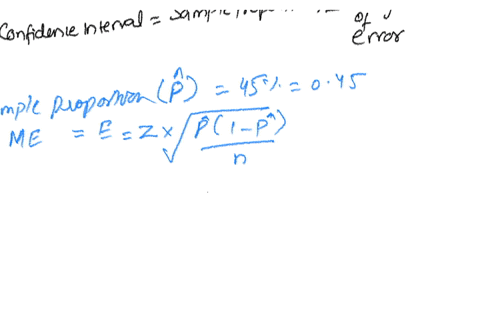 Confidence Interval = Sample ± of
error
mple proportion (p̂) = 45% = 0.45
ME = E = Z × √(p̂(1-p̂)/n)